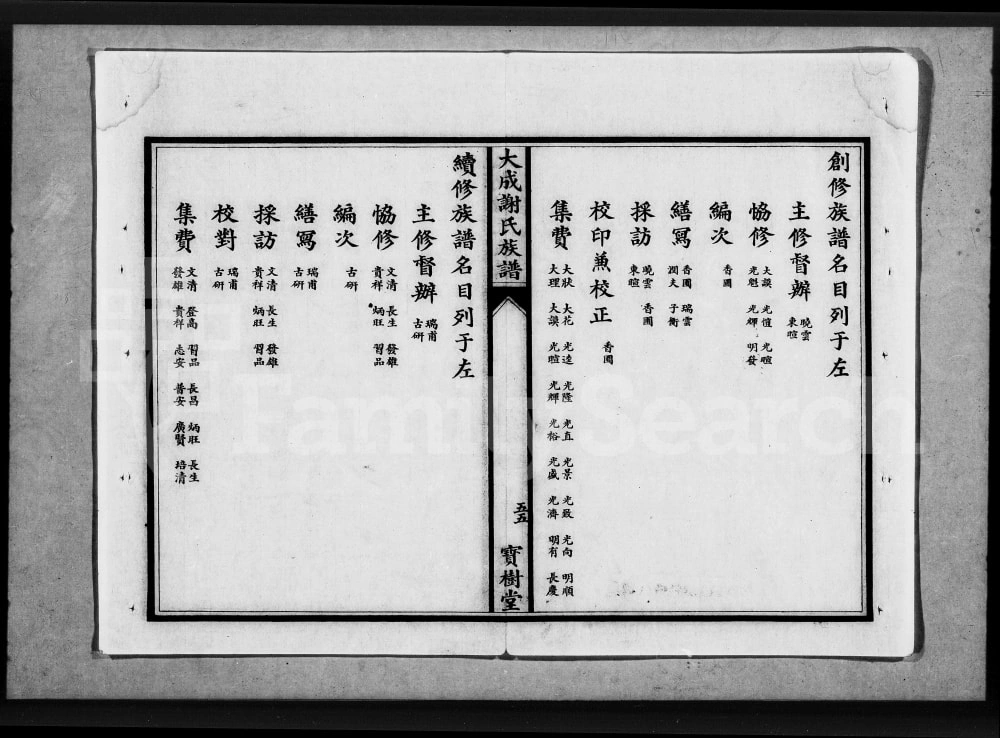 創修族譜名目列于左
主修督辦 曉雲 東暄
協修 大謨 光愷 光暄 光魁 光輝 明發
編次 香圃
繕寫 香圃 瑞雲 潤夫 子衡
採訪 曉雲 香圃 東暄
校印兼校正 香圃
集費 大狀 大花 光逵 光隆 光直 光景 光致 光向 明順 大理 大謨 光暄 光輝 光裕 光盛 光濟 明有 長慶
大成謝氏族譜
五五
寶樹堂
續修族譜名目列于左
主修督辦 瑞甫 古研
協修 文清 長生 發雄 貴祥 炳旺 習品
編次 古研
繕寫 瑞甫 古研
採訪 文清 長生 發雄 貴祥 炳旺 習品
校對 瑞甫 古研
集費 文清 登高 習品 長昌 炳旺 長生 發雄 貴祥 志安 普安 廣賢 培清
FamilySearch